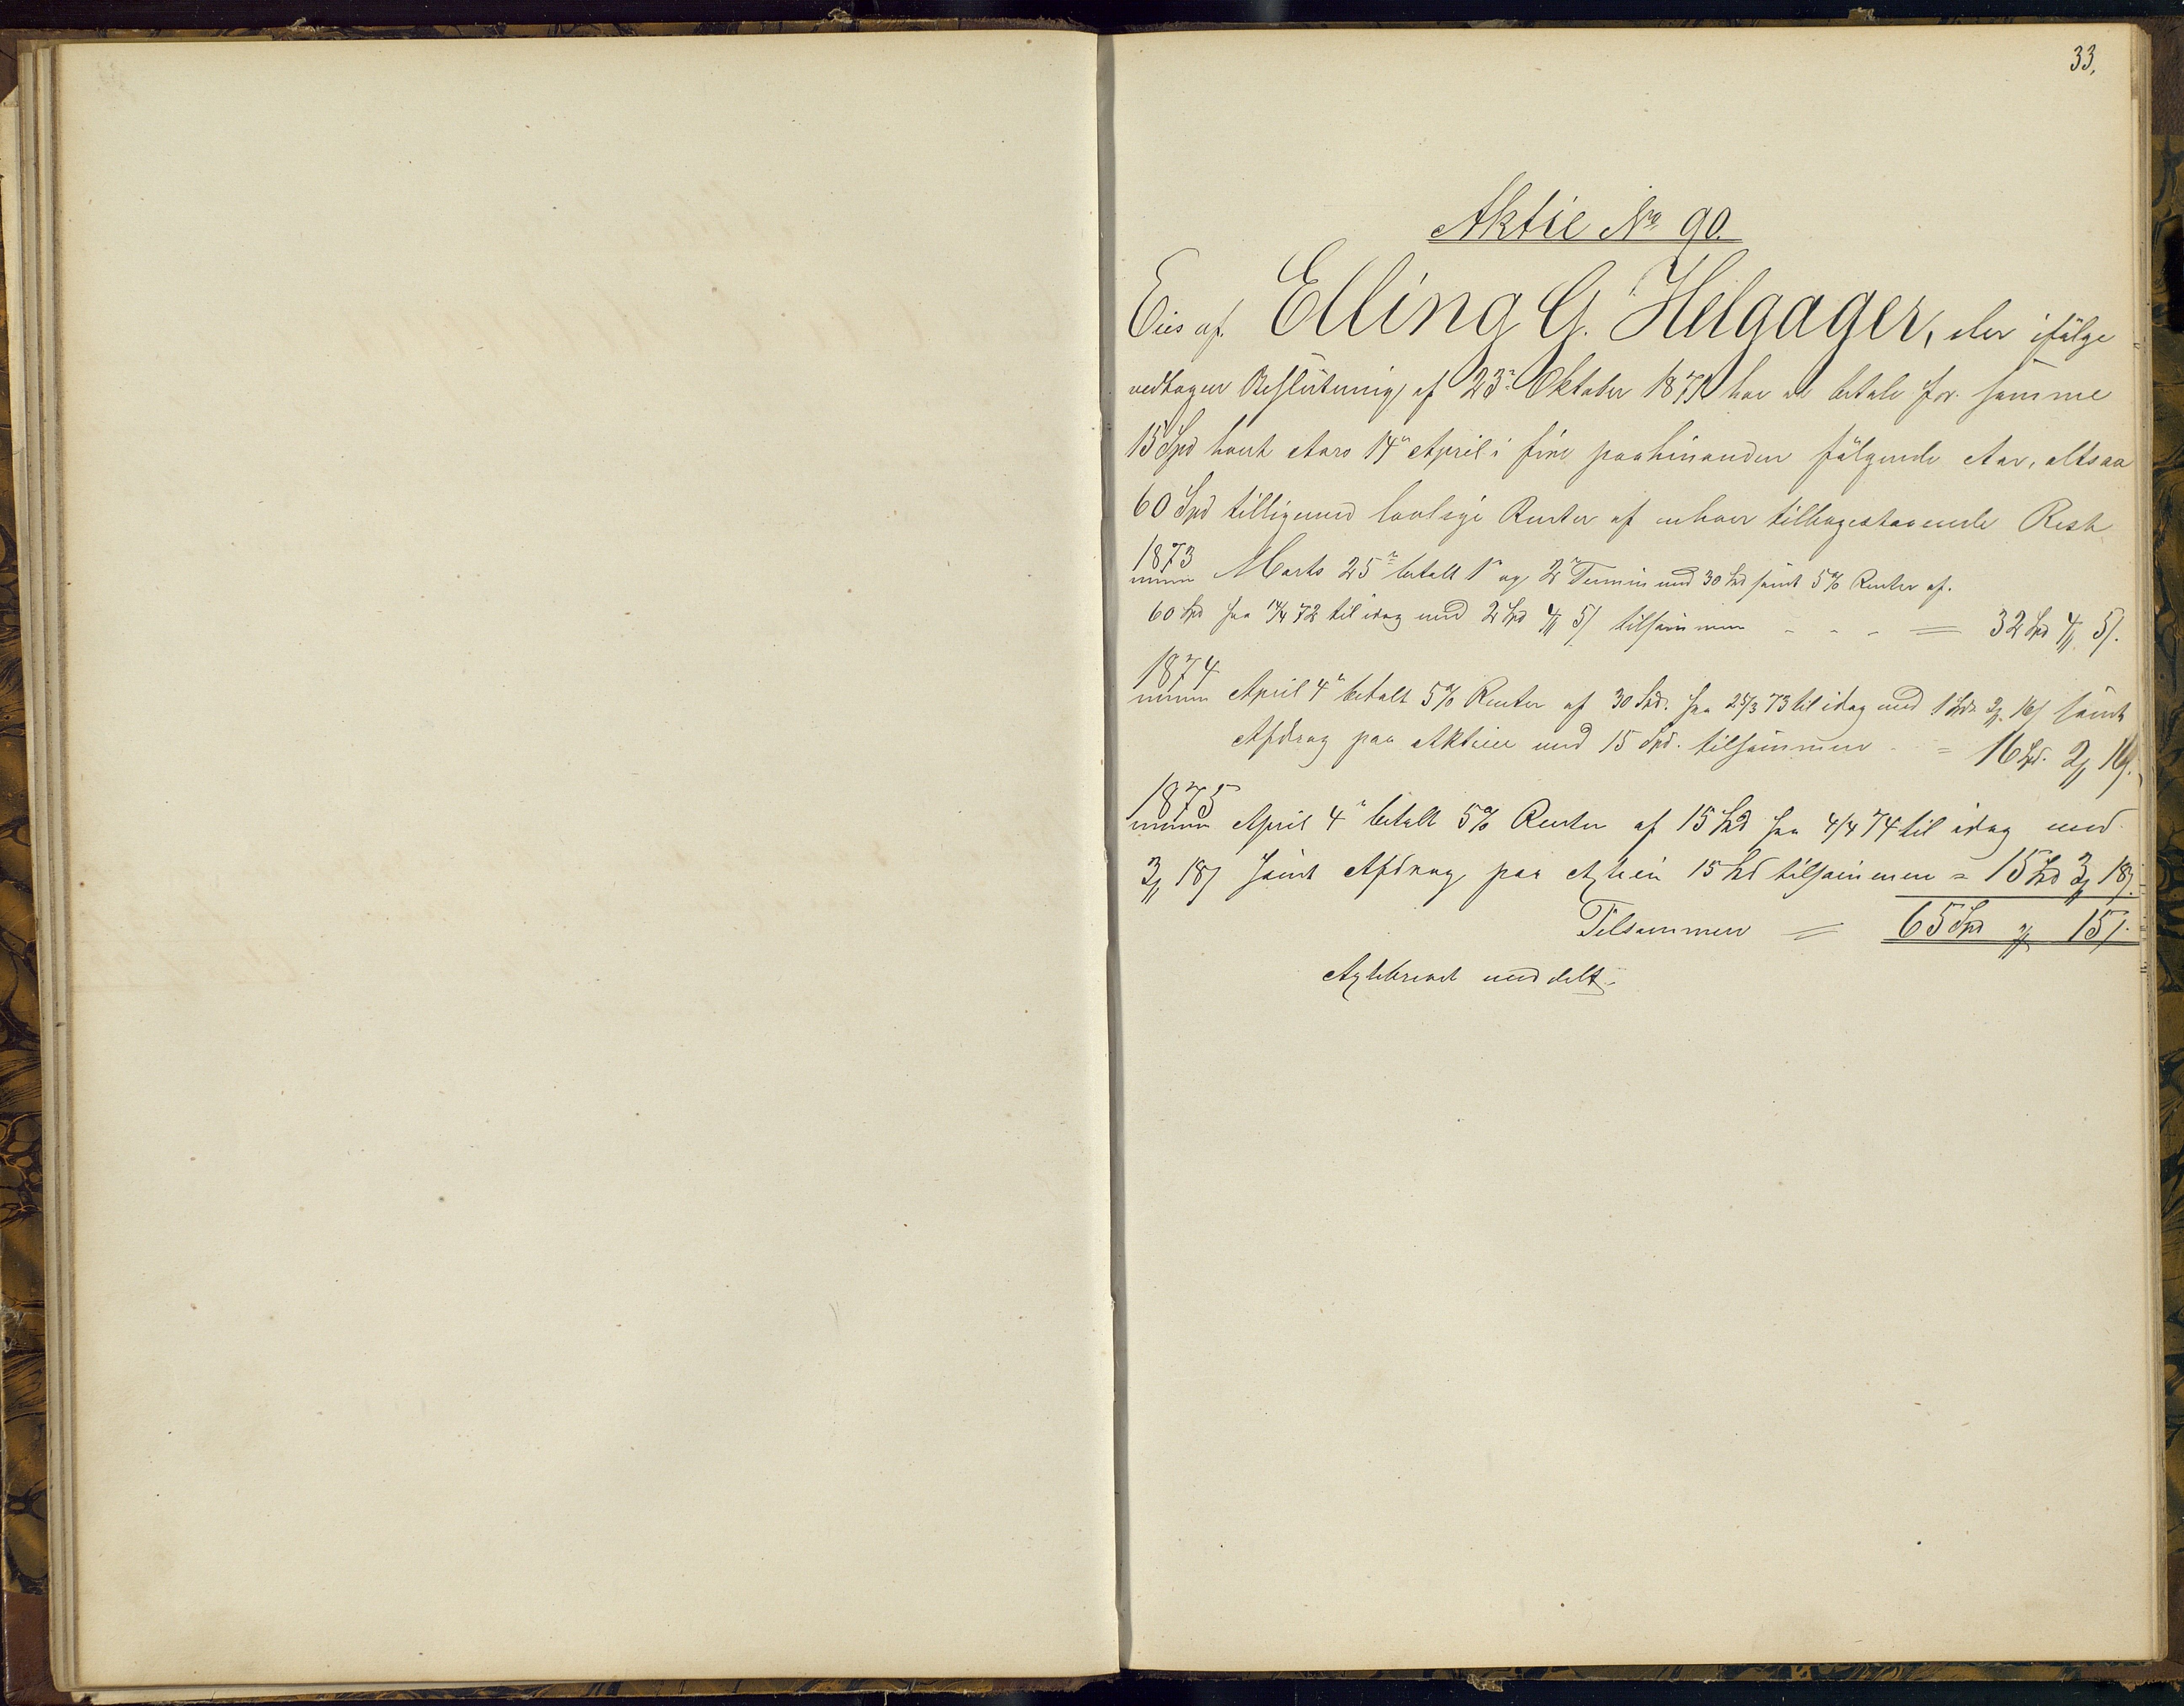 33.
Aktie No 90.
Eies af. Elling G. Helgager, der ifølge
vedtagen Beslutning af 23de Oktober 1871 har at betale for samme
15 Spd hvert Aars 14de April i fire paahinanden følgende Aar, altsaa
60 Spd tilligemed lovlige Renter af enhver tilbagestaaende Rest
1873 Marts 25de betalt 1ste og 2den Termin med 30 Spd samt 5% Renter af.
60 Spd fra 14/4 72 til idag med 2 Spd 4 ₥ 5 ſ tilsammen - - - = 32 Spd 4 ₥ 5 ſ.
1874 April 4de betalt 5% Renter af 30 Spd. fra 25/3 73 til idag med 1 Spd. 2 ₥ 16 ſ samt
Afdrag paa Aktien med 15 Spd. tilsammen = 16 Spd. 2 ₥ 16 ſ.
1875 April 4de betalt 5% Renter af 15 Spd fra 4/4 74 til idag med
3 ₥ 18 ſ samt Afdrag paa Aktien 15 Spd tilsammen = 15 Spd 3 ₥ 18 ſ.
Tilsammen = 65 Spd " ₥ 15 ſ.
Aktiebrevet meddelt.